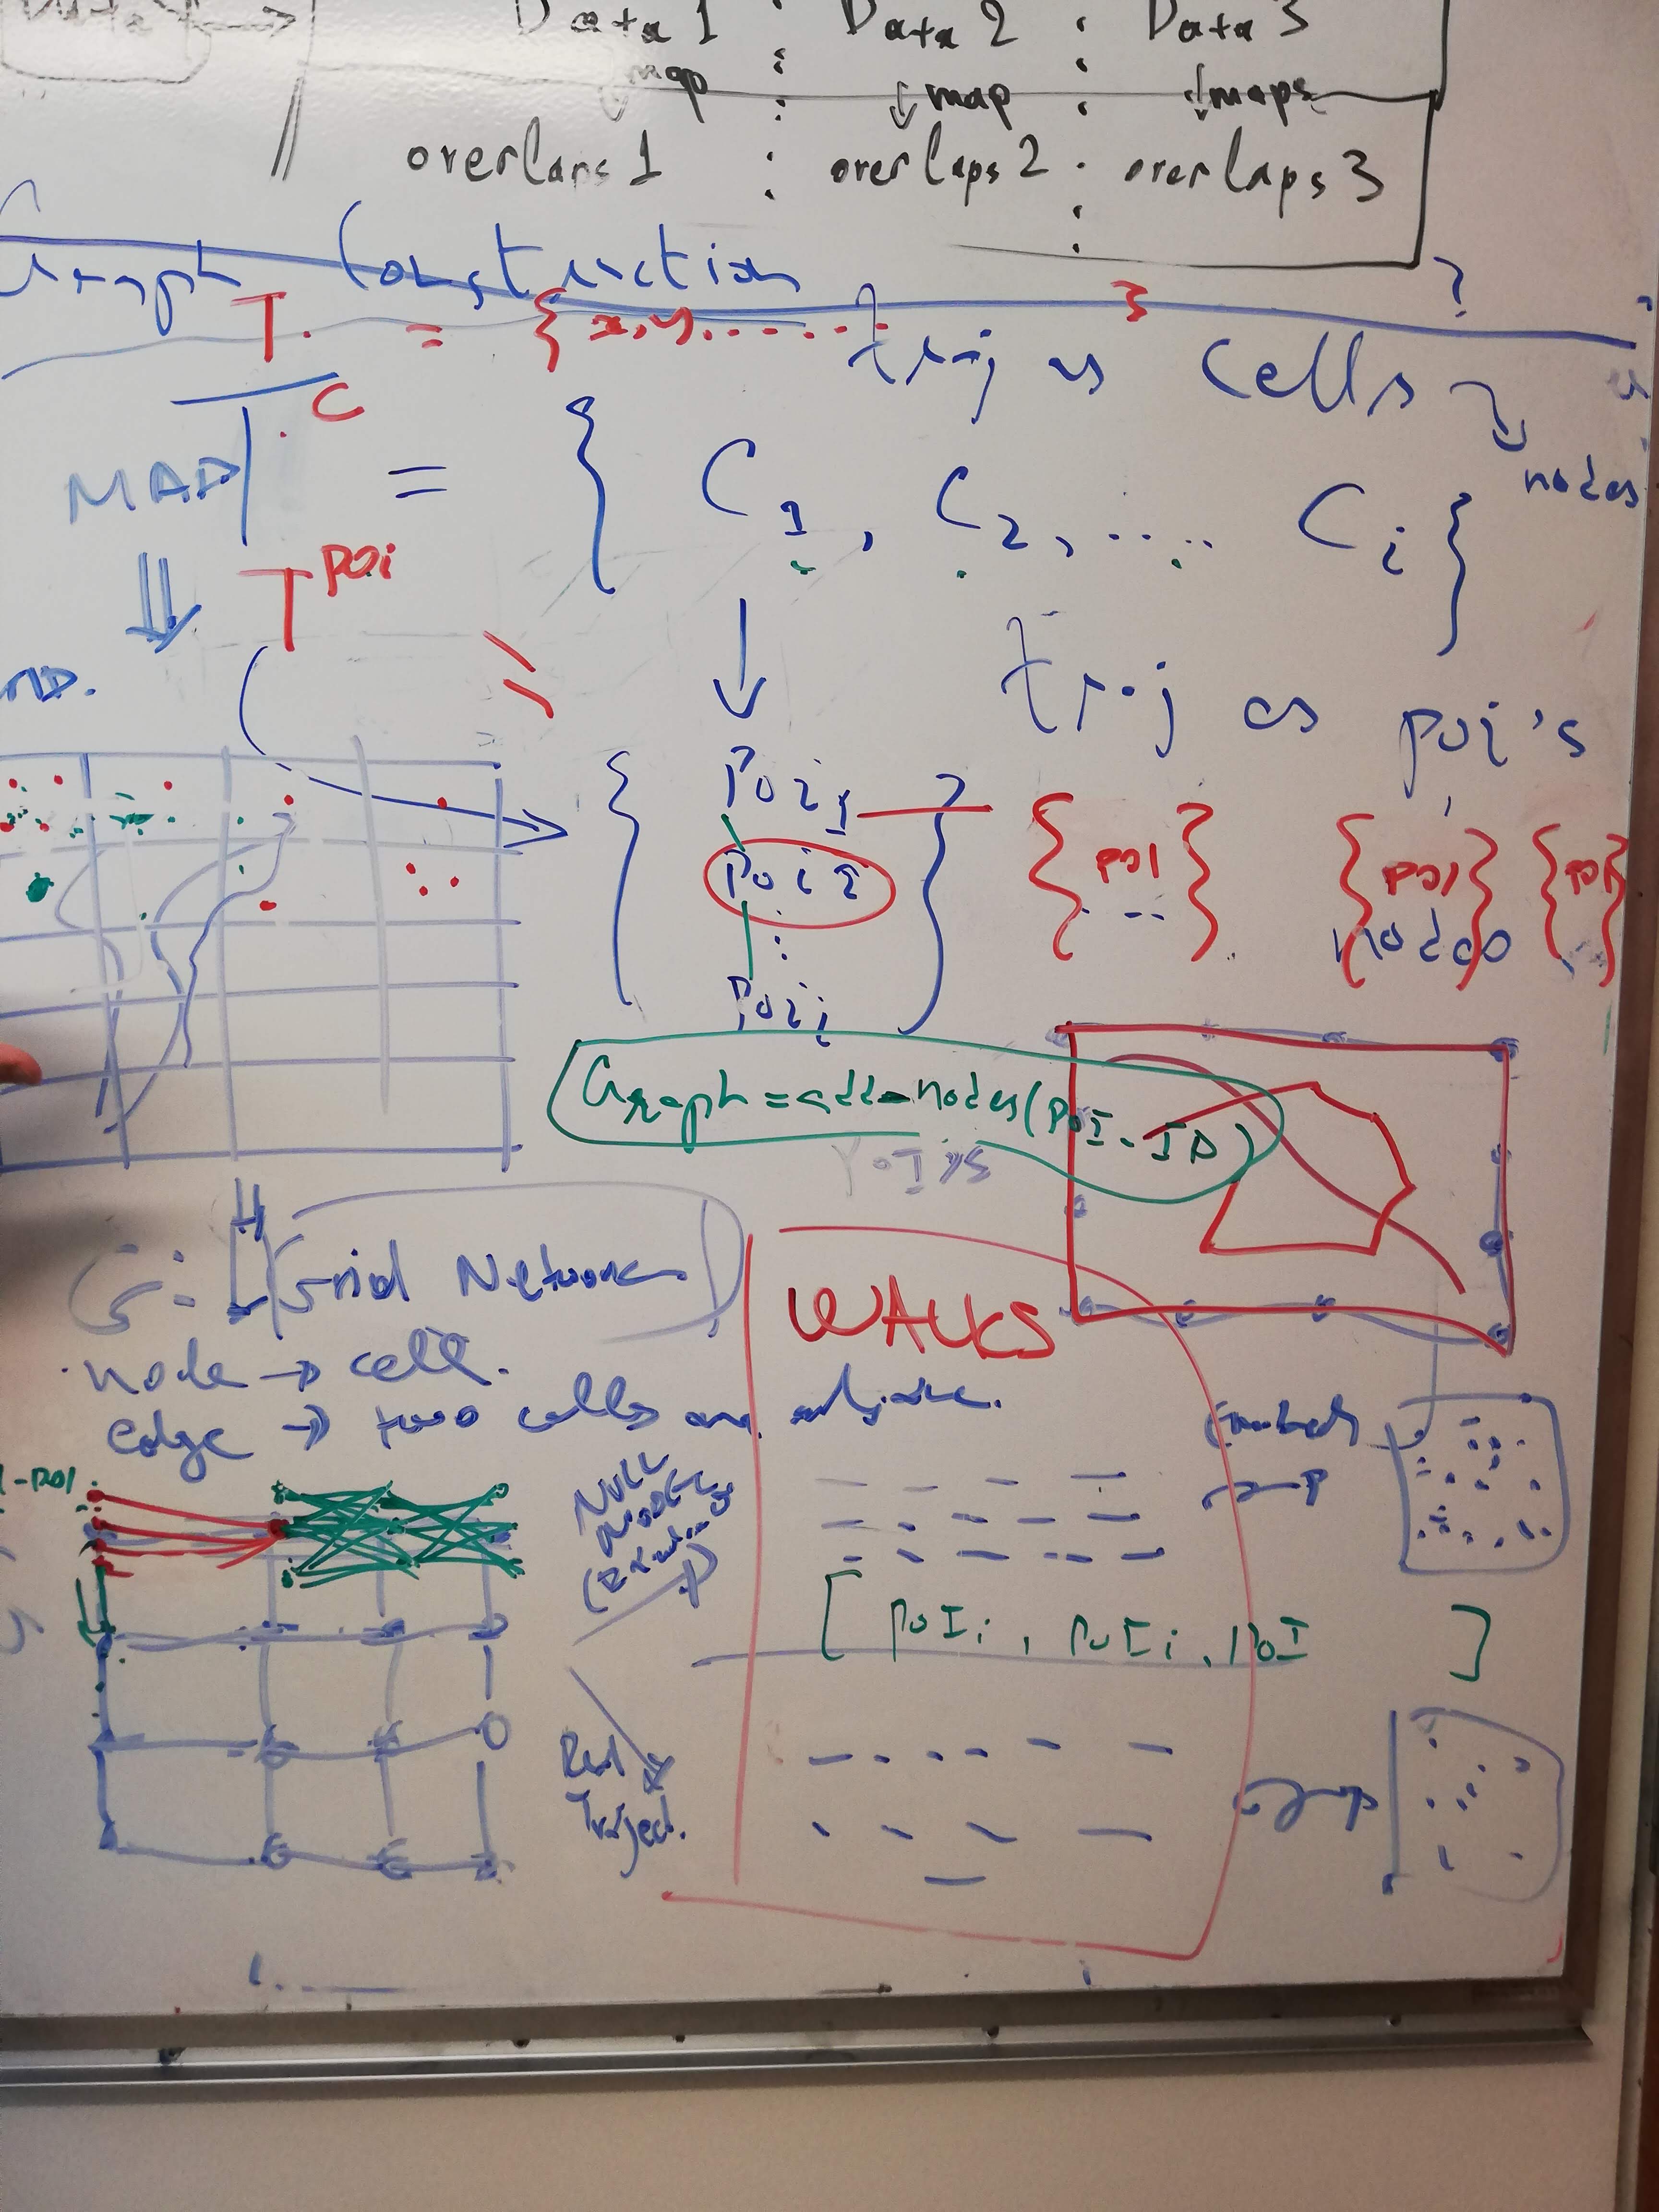 Data 1 : Data 2 : Data 3
map : ↓ map : ↓ maps
overlaps 1 : overlaps 2 : overlaps 3
Graph Construction
T = { x, y, ....... }
traj as cells
nodes
MAP
T C = { C1 , C2 , ..... Ci }
T POi
traj as poi's
{ Poi 1
Poi 2
:
Poi i }
{ POI } { POI } { POI }
nodes
Graph = add-nodes(POI-ID)
POI's
G: Grid Network
node → cell.
edge → two cells are
WALKS
-POI
NULL
MODEL
[ POIi , POIi , POI ]
Real
Traject.